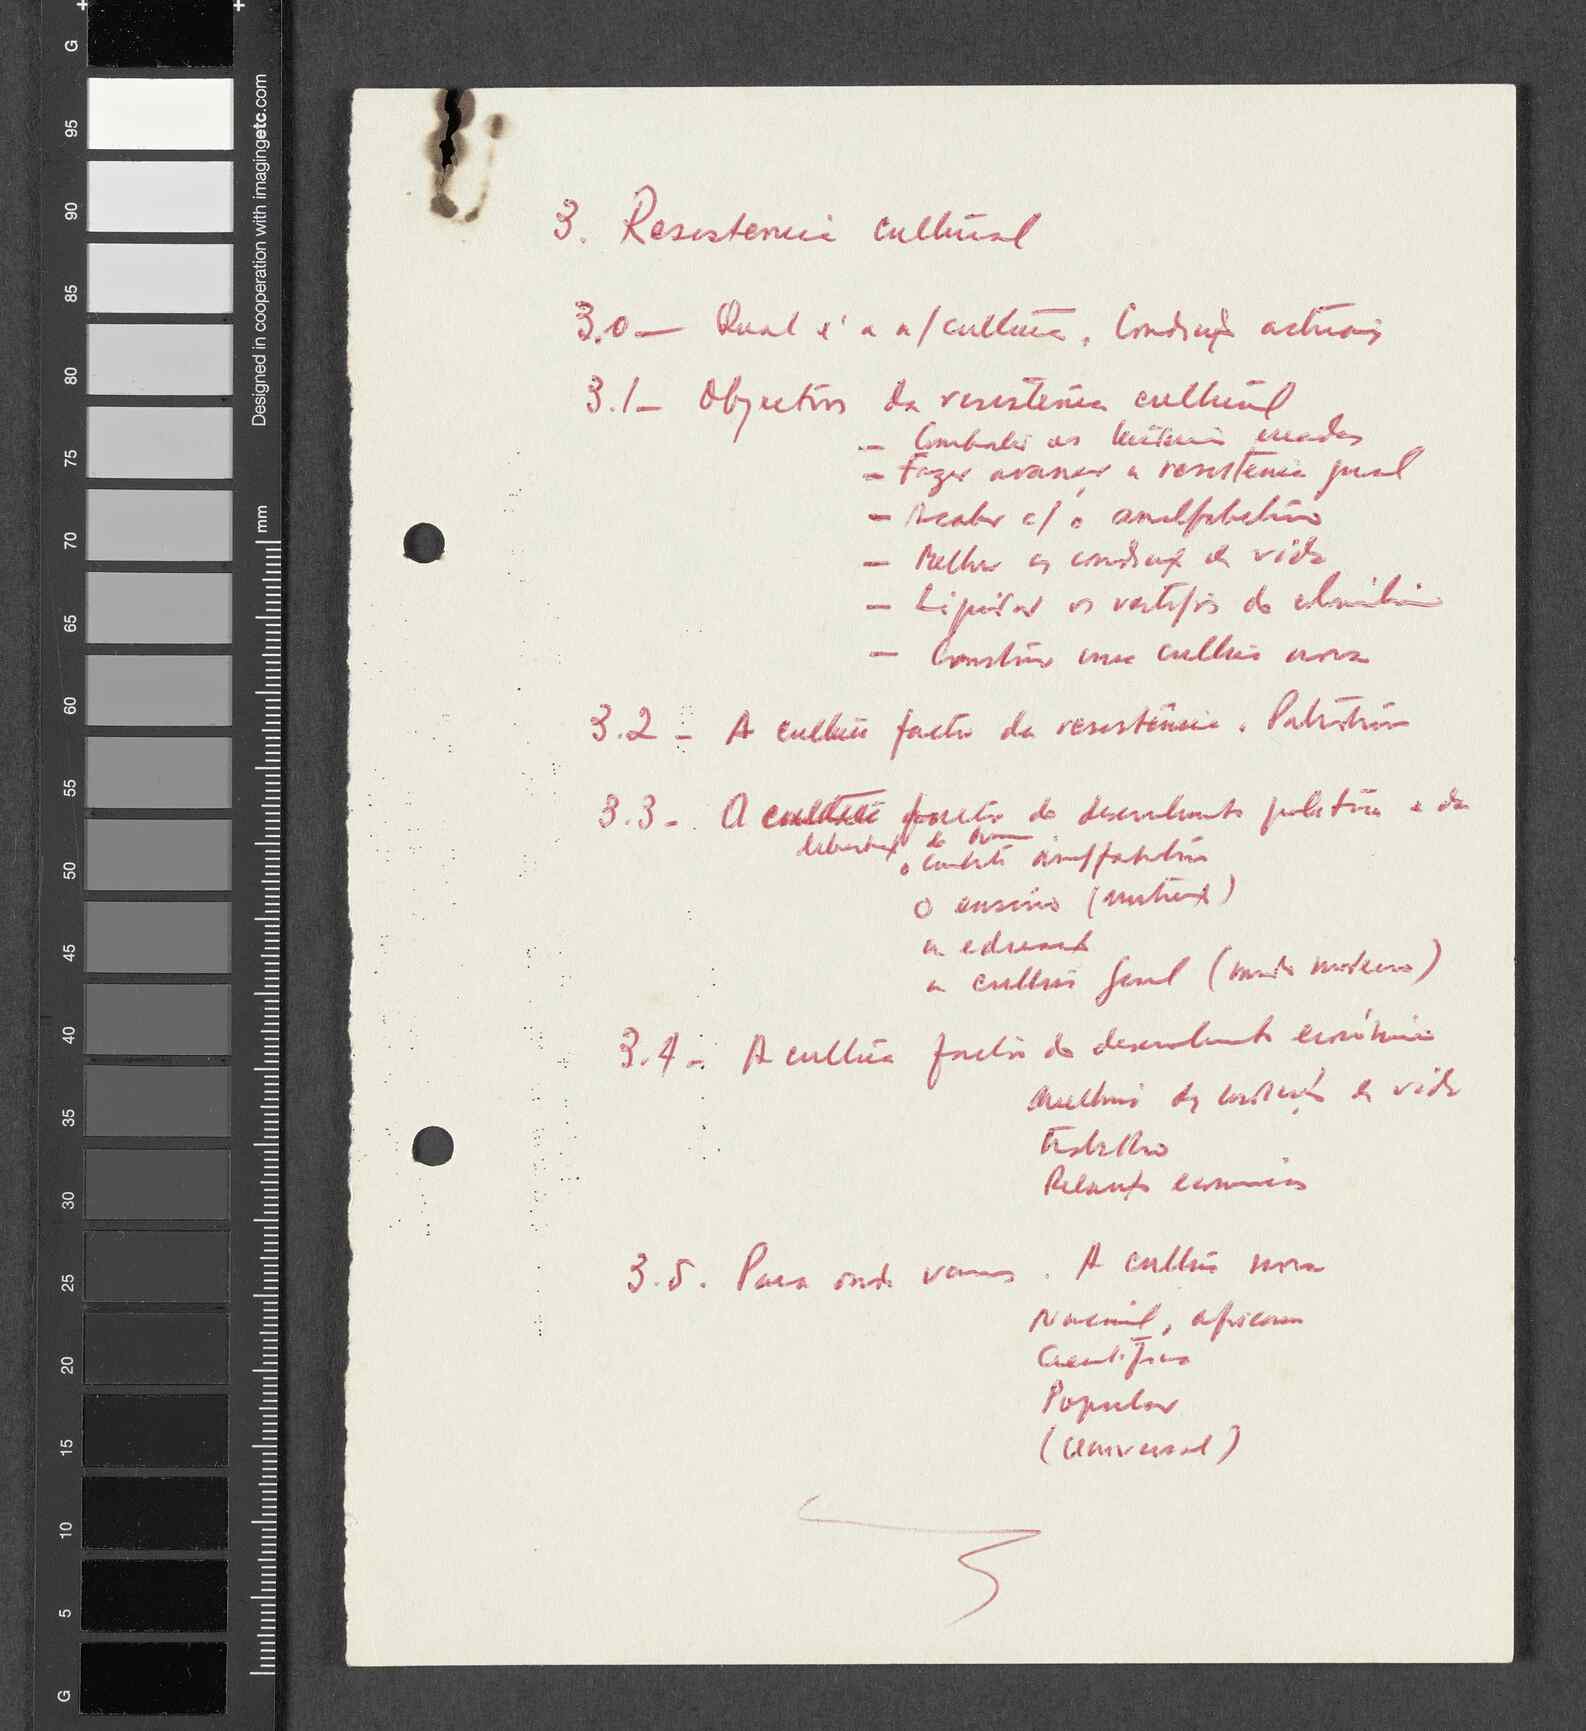 G
95
90
85
80
75
70
65
60
55
50
45
40
35
30
25
20
15
10
5
G
Designed in cooperation with imagingetc.com
mm
3. Resistencia cultural
3.0 — Qual é a n/cultura. Condições actuais
3.1 — Objectivos da resistência cultural
— Combater as criadas
— Fazer avançar a resistencia geral
— Acabar c/ o analfabetismo
— Melhorar as condições de vida
— Liquidar os vestígios do colonialismo
— Construir uma cultura nova
3.2 — A cultura factor da resistência. Patriotismo
3.3 — A cultura factor do desenvolvimento político e da
do
combate analfabetismo
O ensino (instrução)
a educação
a cultura geral (mundo moderno)
3.4 — A cultura factor do desenvolvimento económico
melhoria das condições de vida
Trabalho
Relações economicas
3.5. Para onde vamos. A cultura nova
Nacional, africana
Cientifica
Popular
(Universal)